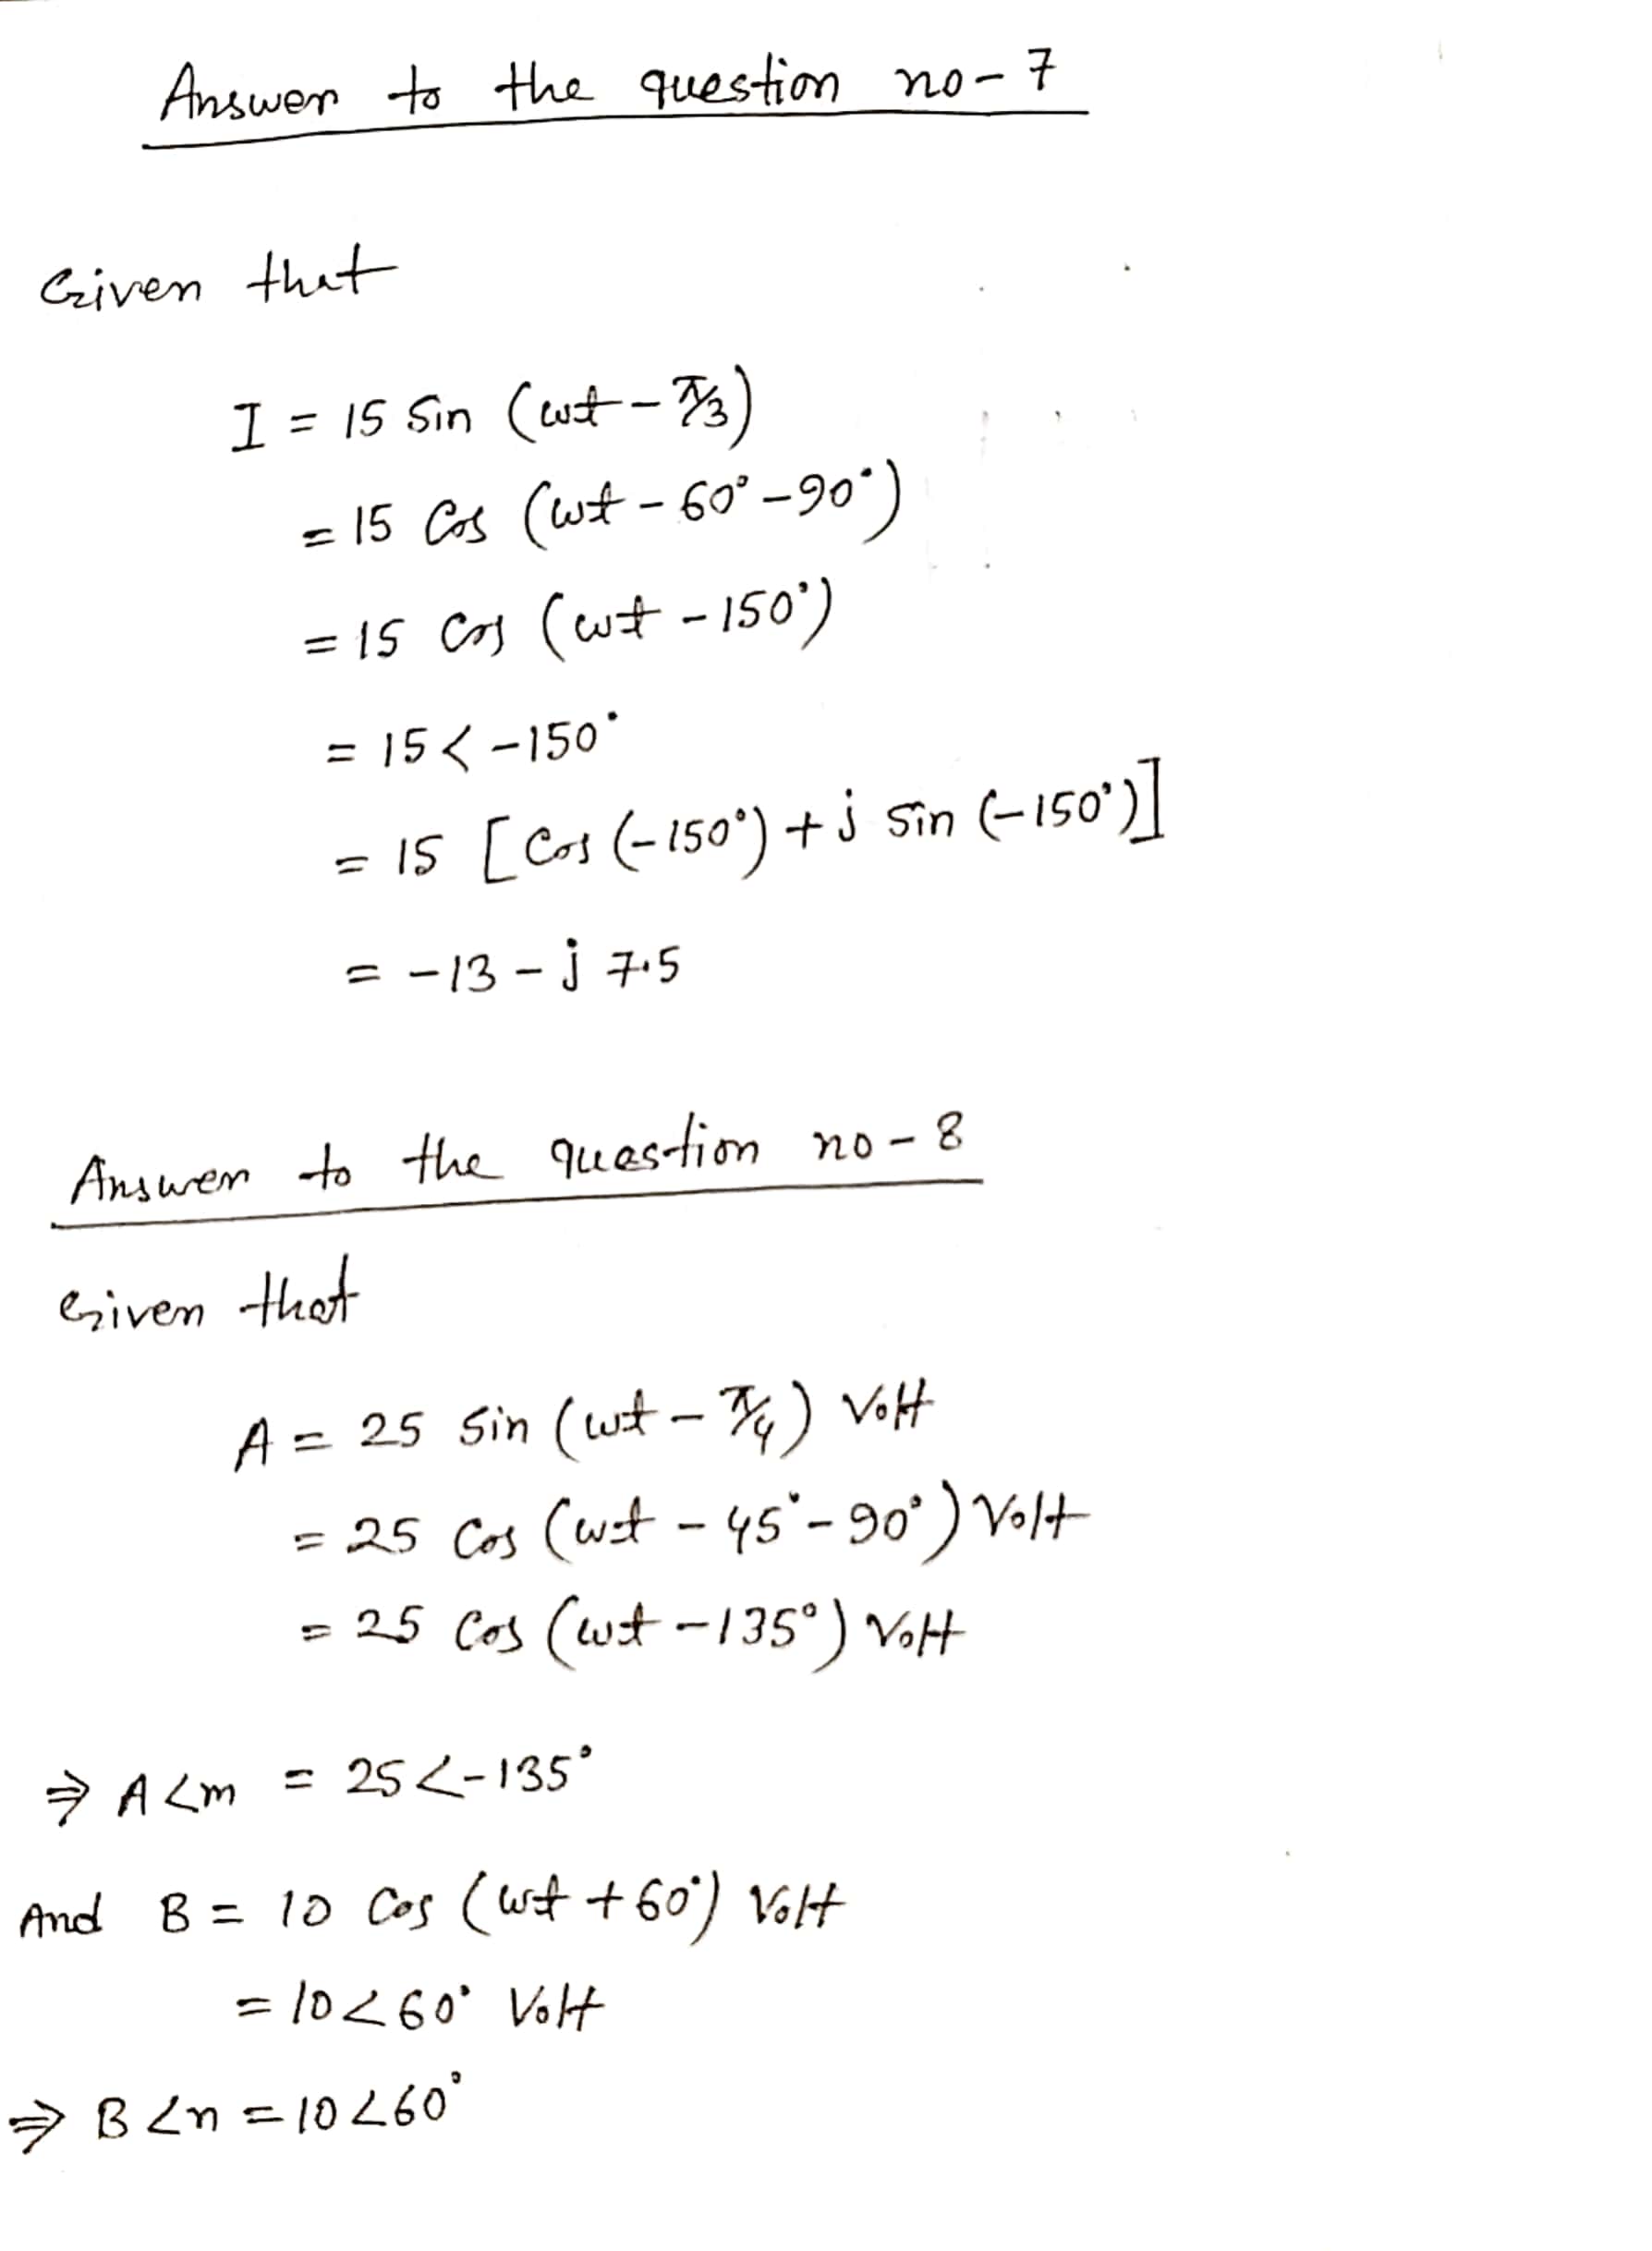 Answer to the question no-7
Given that
I = 15 Sin (ωt - π/3)
= 15 Cos (ωt - 60° - 90°)
= 15 Cos (ωt - 150°)
= 15 < -150°
= 15 [Cos (-150°) + j Sin (-150°)]
= -13 - j 7.5
Answer to the question no-8
Given that
A = 25 Sin (ωt - π/4) Volt
= 25 Cos (ωt - 45° - 90°) Volt
= 25 Cos (ωt - 135°) Volt
⇒ A <m = 25 < -135°
And B = 10 Cos (ωt + 60°) Volt
= 10 < 60° Volt
⇒ B <n = 10 < 60°